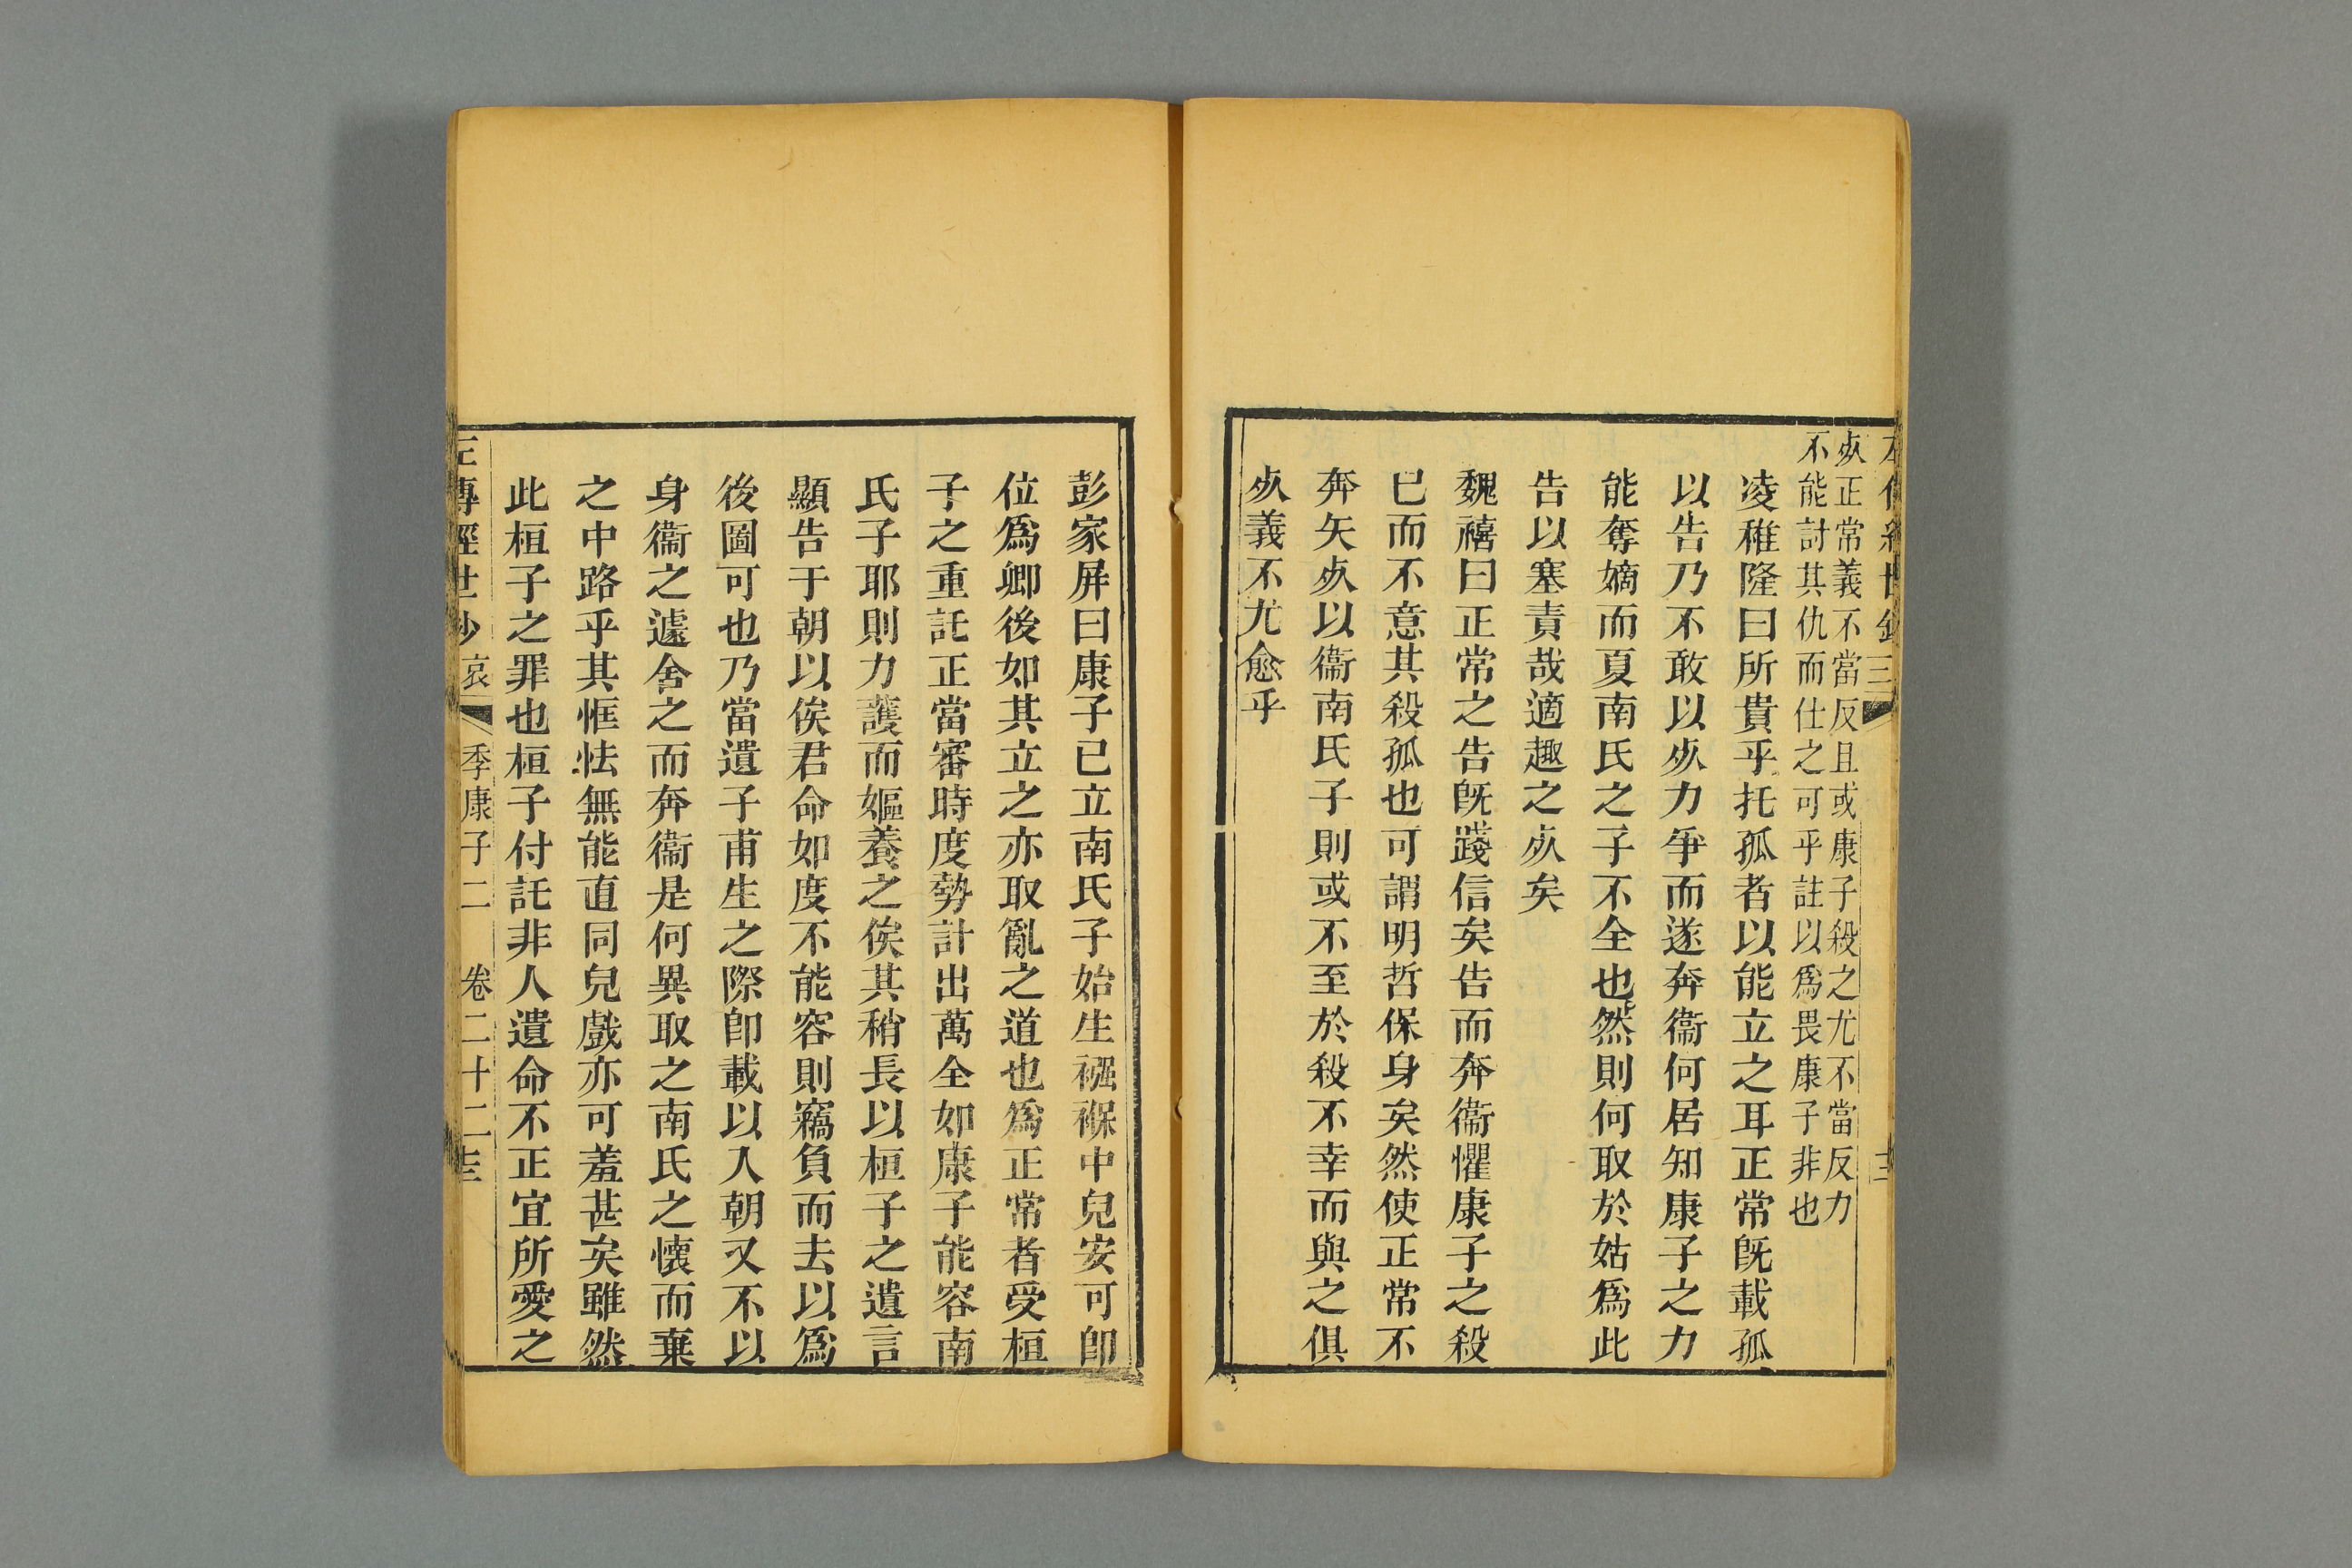 死正常義不當反且或康子殺之尤不當反力
不能討其仇而仕之可乎註以爲畏康子非也
凌稚隆曰所貴乎托孤者以能立之耳正常旣載孤
以告乃不敢以死力爭而遂奔衞何居知康子之力
能奪嫡而夏南氏之子不全也然則何取於姑爲此
告以塞責哉適趣之死矣
魏禧曰正常之告旣踐信矣告而奔衞懼康子之殺
已而不意其殺孤也可謂明哲保身矣然使正常不
奔矢死以衞南氏子則或不至於殺不幸而與之俱
死義不尤愈乎
彭家屏曰康子已立南氏子始生襁褓中兒安可卽
位爲卿後如其立之亦取亂之道也爲正常者受桓
子之重託正當審時度勢計出萬全如康子能容南
氏子耶則力護而嫗養之俟其稍長以桓子之遺言
顯告于朝以俟君命如度不能容則竊負而去以爲
後圖可也乃當遺子甫生之際卽載以入朝又不以
身衞之遽舍之而奔衞是何異取之南氏之懷而棄
之中路乎其恇怯無能直同兒戲亦可羞甚矣雖然
此桓子之罪也桓子付託非人遺命不正宜所愛之
左傳經世鈔 哀 季康子二 卷二十二